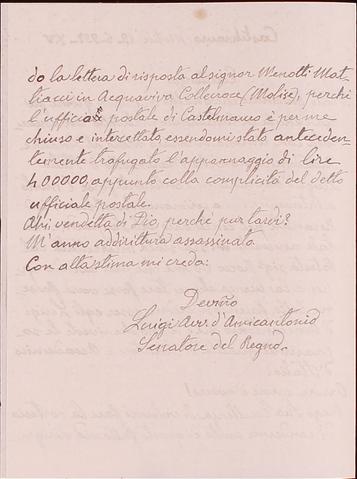 do la lettera di risposta al signor Menotti Mat-
tiacci in Acquaviva Collecroce (Molise), perchè
l'ufficio postale di Castelmauro è per me
chiuso e intercettato, essendomi stato anteceden-
temente trafugato l'appannaggio di lire
400000, appunto colla complicità del detto
ufficiale postale.
Ahi vendetta di Dio, perchè pur tardi?
M'anno addirittura assassinato.
Con alta stima mi creda:
Devmo
Luigi Avv. d'Amicantonio
Senatore del Regno.